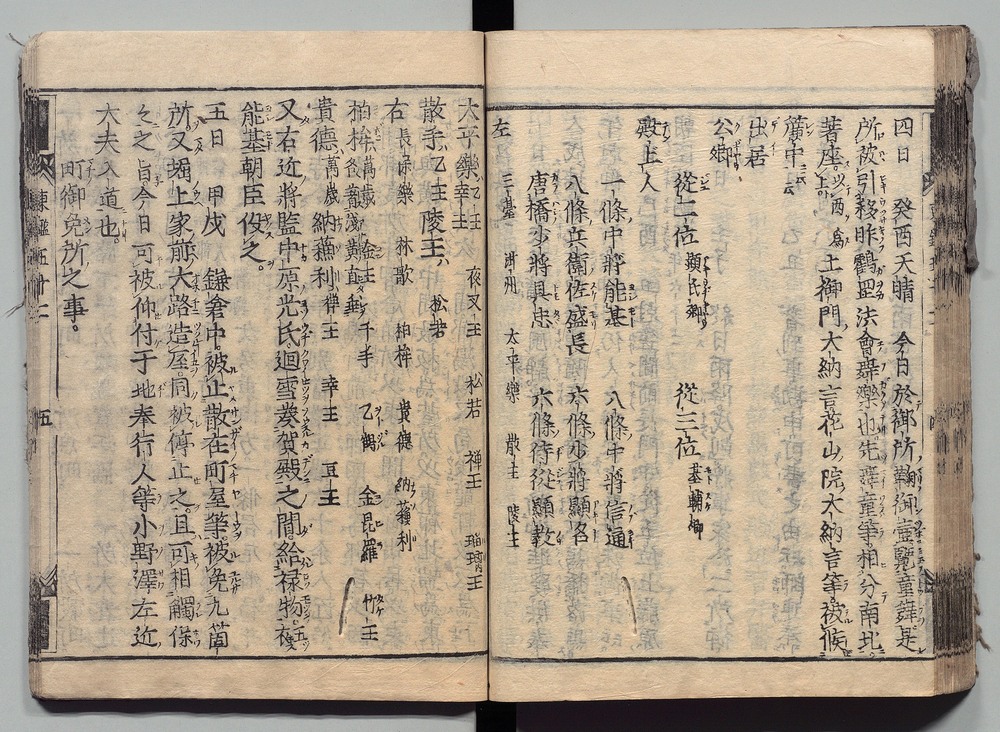 四日 癸酉天晴 今日於御所鞠御壺覽童舞是
所被引移昨鶴罡法會舞樂也先舞童等相分南北
著座上以西為土御門大納言花山院大納言等被候
簾中云云
出居
公卿
從二位 顯氏卿 從三位 基輔卿
殿上人
一條中將能基 八條中將信通
八條兵衛佐盛長 六條少將顯名
唐橋少將具忠 六條侍從顯教
左 三臺 太平樂 散手 陵王
太平樂幸王乙王 夜叉王 松若 禅王 瑠璃王
散手乙王陵王松若
右長保樂 林歌 狛桙 貴德 納蘓利
狛桙 金王 千手 乙鶴 金毘羅 竹王
貴德萬歳納蘓利禅王 幸王 豆王
又右近將監中原光氏迴雪羙賀殿之間給禄物
能基朝臣役之
五日 甲戌 鎌倉中被止散在町屋等被免九箇
所又堀上家前大路造屋同被停止之且可相觸保
之之旨今日可被仰付于地奉行人等小野澤左近
大夫入道也
町御免所之事
東鑑五十二
五